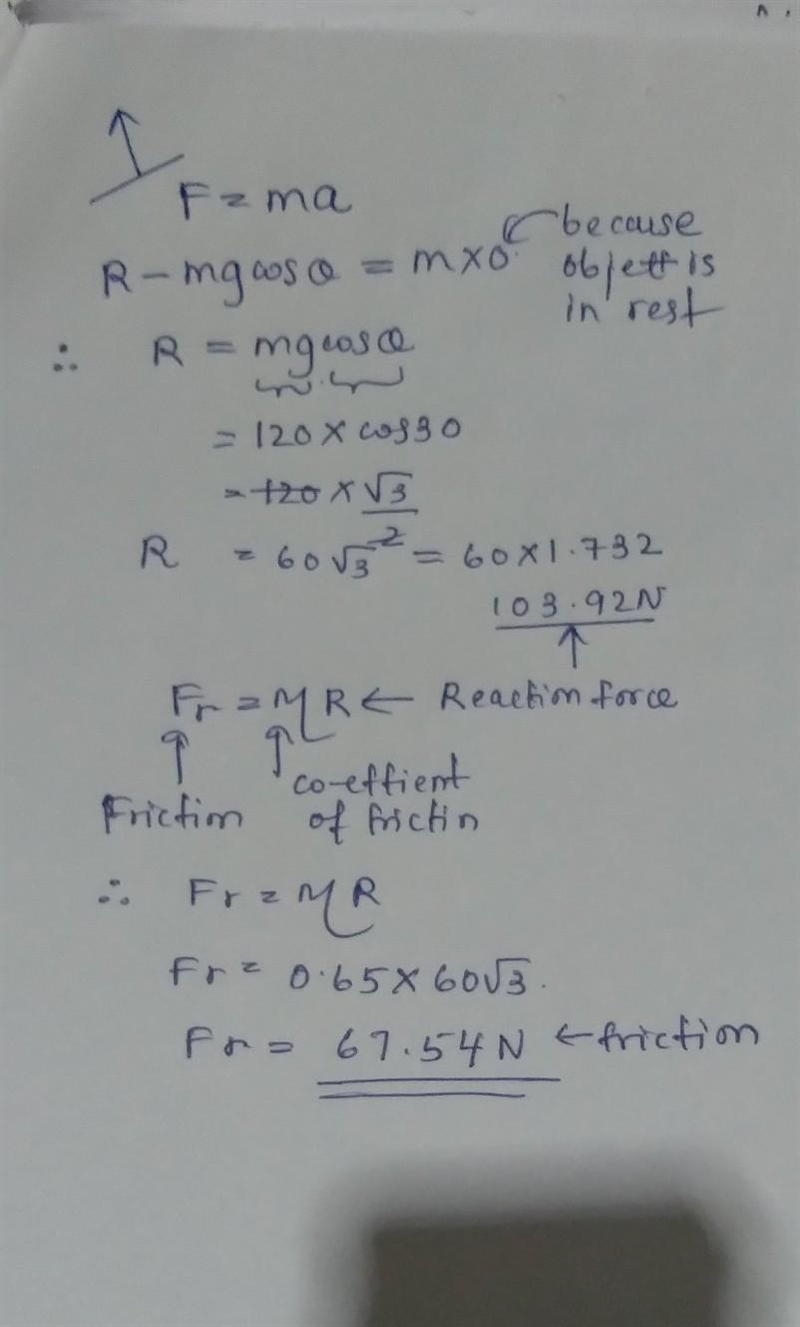 F = ma
R - mg cos θ = m×0 because object is in rest
∴ R = mg cos θ
= 120 × cos 30
= 120 × √3
2
R = 60√3 = 60×1.732
103.92N
Fr = μR ← Reaction force
Friction co-effient of frictin
∴ Fr = μR
Fr = 0.65×60√3.
Fr = 67.54N ← friction